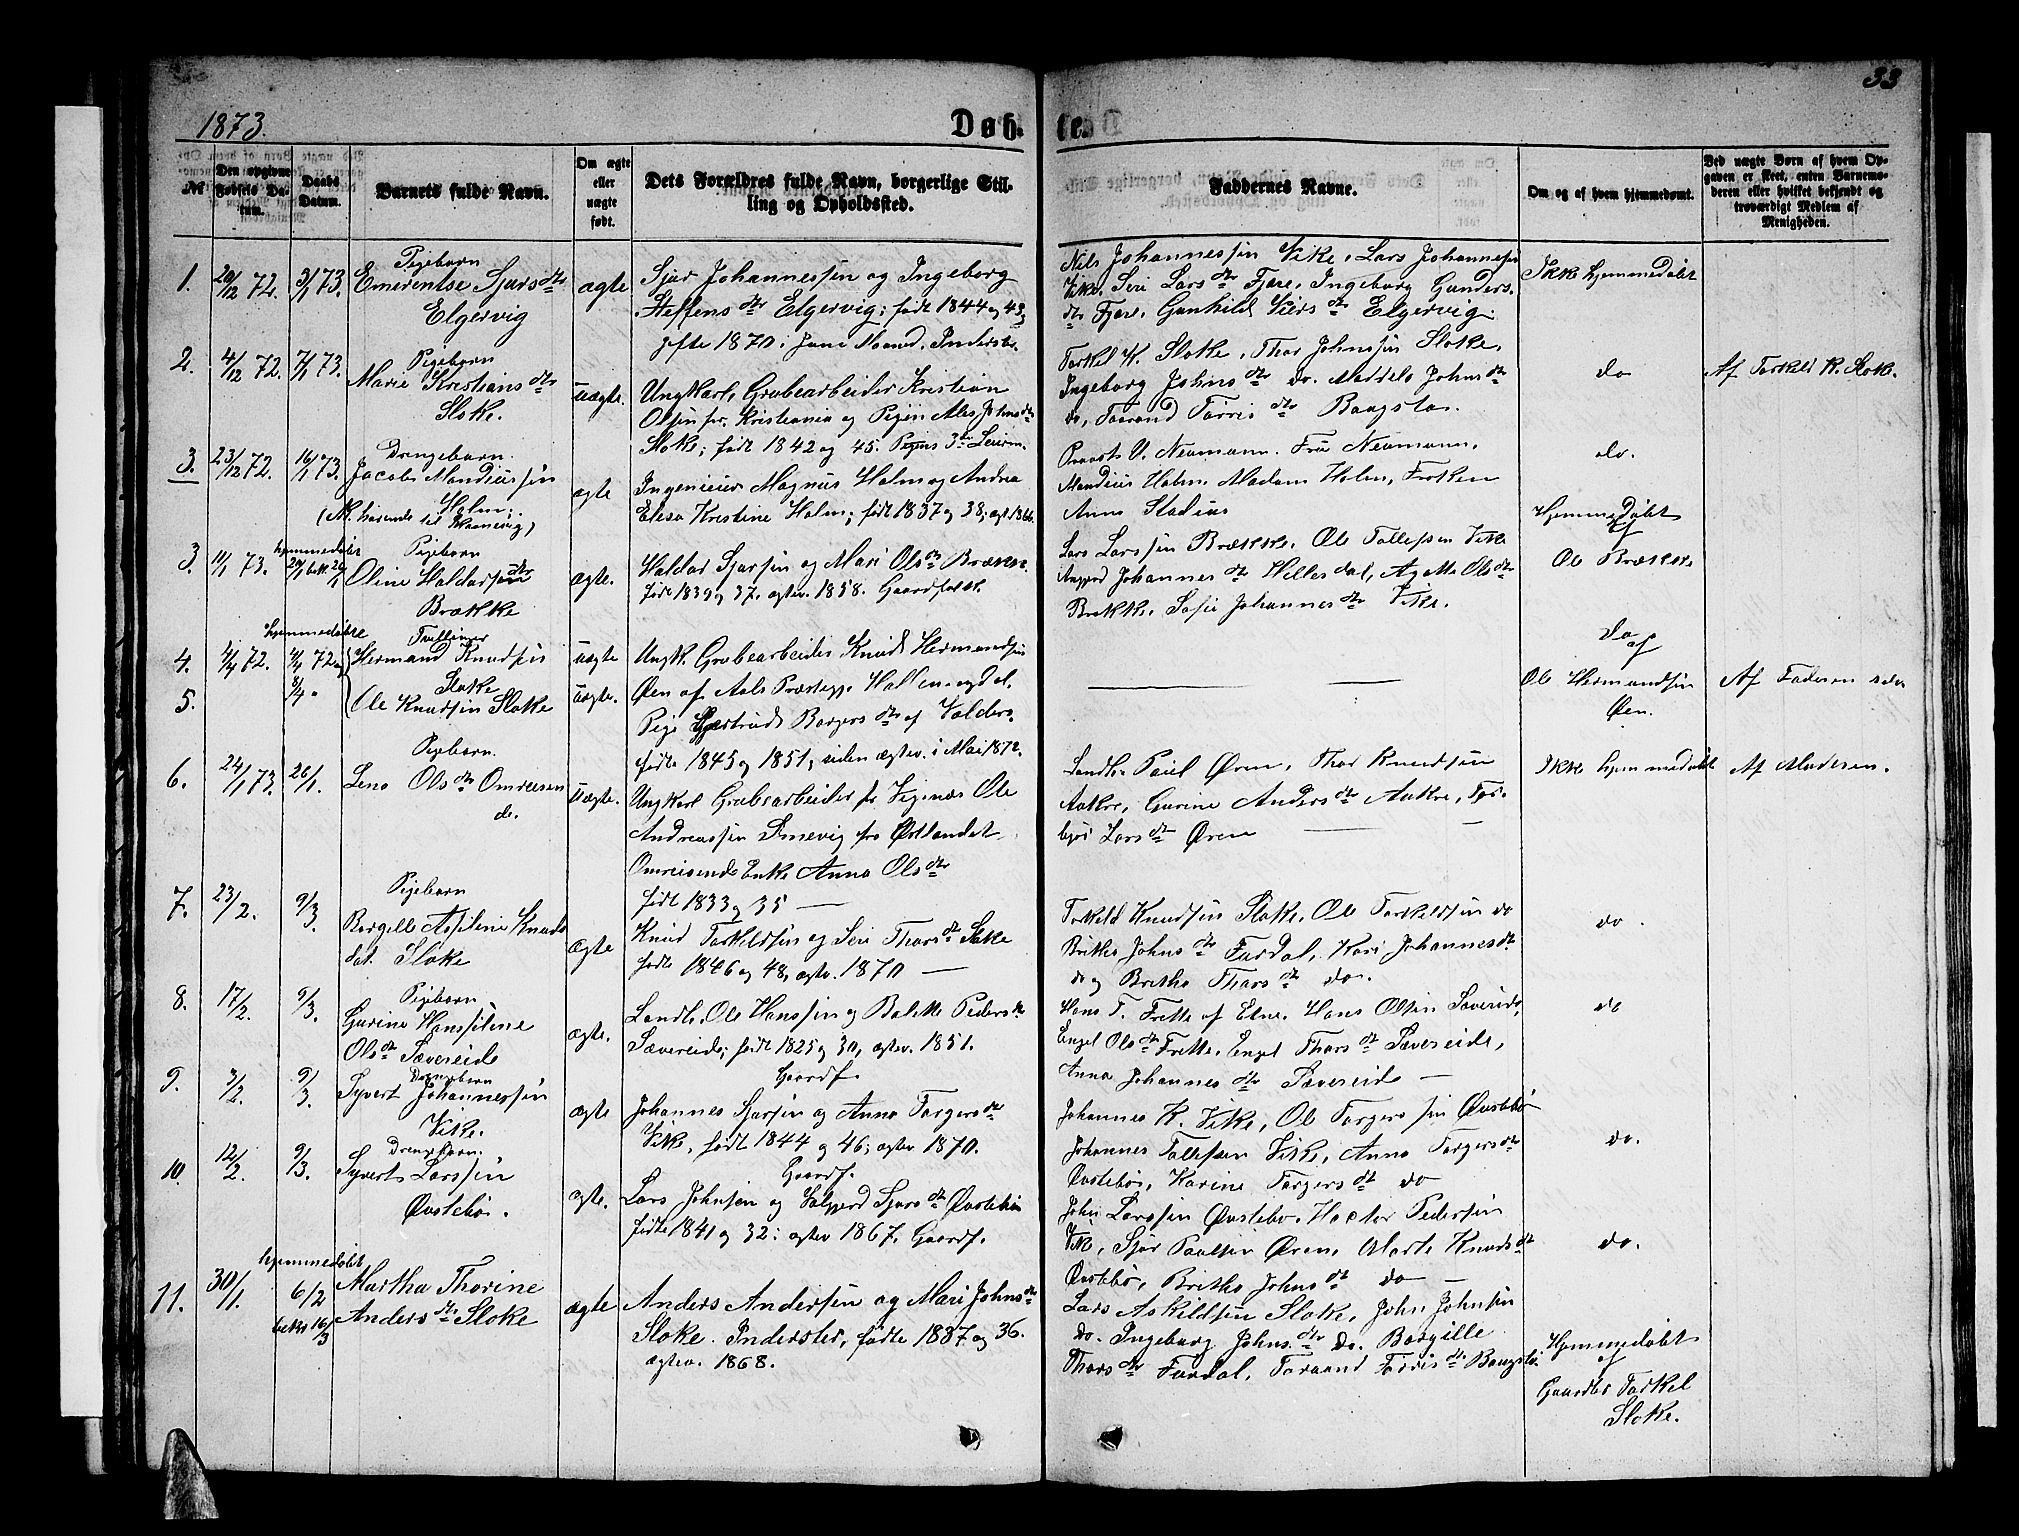 33
1873.
Døb-
te.
№
Den opgivne Fødsels Datum.
Daabs Datum.
Barnets fulde Navn.
Om ægte eller uægte født.
Dets Forældres fulde Navn, borgerlige Stilling og Opholdssted.
Faddernes Navne.
Om og af hvem hjemmedøbt.
Ved uægte Børn af hvem Opgaven er skeet, enten Barnemoderen eller hvilket bekjendt og troværdigt Medlem af Menigheden.
1. 20/12 72. 3/1 73.
Pigebarn
Emerentse Sjursdtr
Elgervig
ægte
Sjur Johannessen og Ingeborg
Steffensdtr Elgervig; født 1844 og 43,
gifte 1870 i Juni Maaned. Inderster.
Nils Johannessen Vike, Lars Johannessen
Vike, Seri Larsdtr Fjære, Ingeborg Gunders-
dtr Fjære, Gunhild Elgervig.
Ikke hjemmedøbt
2. 4/12 72. 7/1 73.
Pigebarn
Marie Kristiansdtr
Sloke.
uægte.
Ungkarl, Grubearbeider Kristian
Olsen fr. Kristiania og Pigen Ales Johnsdtr
Sloke; født 1842 og 45. Pigens 3die Leierm.
Torkel K. Sloke, Thor Johnssen Sloke,
Ingeborg Johnsdtr do. Maddela Johnsdtr
do, Taarand Torrisdtr Baugstø.
do
Af Torkild K. Sloke.
3. 23/12 72. 16/1 73.
Drengebarn.
Jacob Mandiussen
Holm;
ægte
Ingeniør Magnus Holm og Andrea
Elisa Kristine Holm; født 1837 og 38; ægt. 1866.
Provst V. Neumann. Fru Neumann,
Mandius Holm, Madam Holm, Frøken
Anna Stadius
do.
3. 11/1 73.
hjemmedøbt
Pigebarn
Oline Haldorsdtr
Brække
ægte.
Haldor Sjursen og Mari Olsdtr Brække.
født 1839 og 37, ægtev. 1858. Gaardfolk.
Lars Larssen Brække, Ole Tollefsen Vike
Johannesdtr Hillesdal, Agatte Olsdtr
Brække, Sofie Johannesdtr Vike.
Hjemmedøbt
af
Ole Brække
4. 4/4 72.
hjemmedøbte
Tvillinger
Hermand Knudsen
Sloke
uægte
Ungk. Grubearbeider Knud Hermandsen
5.
8/4 "
Ole Knudsen Sloke
uægte.
Øen af Aals Præstegj. Hallingdal.
Pige Gjertrud Borgersdtr af Valders.
født 1845 og 1851, siden ægtev. i Mai 1872.
do
af
Ole Hermandsen
Øen.
Af Faderen selv
6. 24/1 73. 26/1.
Pigebarn.
Lena Olsdtr Omreisen-
de.
uægte.
Ungkarl Grubearbeider fr Vigsnæs Ole
Andreassen fra Østlandet
Omreisende Enke Anna Olsdtr
født 1833 og 35 —
Landh. Poul Øren, Thor Knudsen
Aakre, Gurine Andersdtr Aakre, Tor-
Larsdtr Øren
Ikke hjemmedøbt
Af Moderen.
7. 23/2. 9/3.
Pigebarn
Borgille Aslene Knuds
dat. Sloke
ægte
Knud Torkildsen og Seri Thorsdtr Sloke
født 1846 og 48, ægtev. 1870 —
Torkild Knudsen Sloke, Ole Torkildsen do
Britha Johnsdtr Furdal, Kari Johannesdtr
do og Britha Thorsdtr do.
do.
8. 17/2. 9/3.
Pigebarn
Gurine Hanssilene
Olsdtr Sævereide
ægte.
Landh. Ole Hanssen og Ped­ersdtr
Sævereide; født 1825 og 30, ægtev. 1851.
Gaardf.
Hans T. Frette af Etne. Hans Olsen Sævereide,
Engel Olsdtr Frette, Engel Thorsdtr Sævereide,
Anna Johannesdtr Sævereide —
do
9. 3/2. 9/3.
Drengebarn
Syvert Johannessen
Vike.
ægte
Johannes Sjursen og Anna Torgersdtr
Vike, født 1844 og 46; ægtev 1870.
Gaardf.
Johannes K. Vike, Ole Torgerssen Øvstebø
Johannes Tollefsen Vike, Anna Torgersdtr
Øvstebø, Karine Torgersdtr do
do.
10. 12/2. 9/3.
Drengebarn.
Syvert Larssen
Øvstebø.
ægte.
Lars Johnsen og Valgjerd Sjursdtr Øvstebø
født 1841 og 32; ægtev 1867. Gaardf.
John Larssen Øvstebø. Hector Pedersen
Vik, Sjur Poulsen Øren, Marte Knudsdtr
Øvstebø, Britha Johnsdtr do —
do.
11. 30/1.
hjemmedøbt
6/2
bekr 16/3
Martha Thorine
Andersdtr Sloke
ægte
Anders Andersen og Mari Johnsdtr
Sloke. Inderster, født 1837 og 36.
ægtev. 1868.
Lars Askildsen Sloke, John Johnsen
do. Ingeborg Johnsdtr do. Borgille
Thorsdtr Furdal, Toraand Torrisdtr Baugstø
Hjemmedøbt
af
Gaardbr Torkel
Sloke.